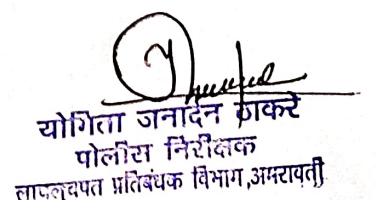 योगिता जनार्दन ठाकरे
पोलीस निरीक्षक
लाचलुचपत प्रतिबंधक विभाग,अमरावती